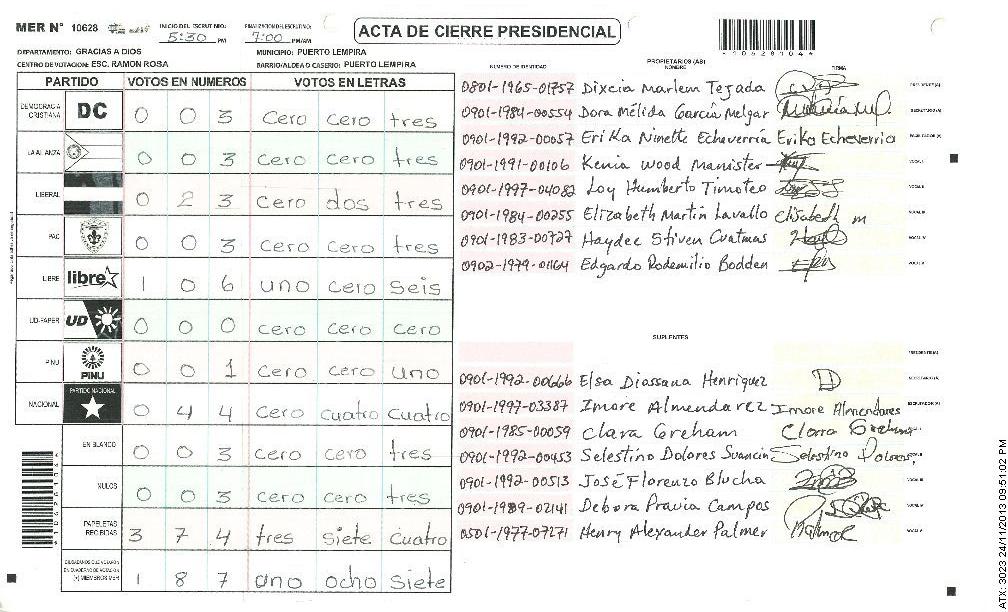 MER N° 10628
INICIO DEL ESCRUTINIO: 5:30 PM
FINALIZACION DEL ESCRUTINIO: 7:00 PM/AM
ACTA DE CIERRE PRESIDENCIAL
*10628104*
DEPARTAMENTO: GRACIAS A DIOS
MUNICIPIO: PUERTO LEMPIRA
CENTRO DE VOTACION: ESC. RAMON ROSA
BARRIO/ALDEA O CASERIO: PUERTO LEMPIRA
PARTIDO VOTOS EN NUMEROS VOTOS EN LETRAS
DEMOCRACIA CRISTIANA DC 0 0 3 cero cero tres
LA ALIANZA 0 0 3 cero cero tres
LIBERAL 0 2 3 cero dos tres
PAC 0 0 3 cero cero tres
LIBRE libre 1 0 6 uno cero seis
UD-FAPER UD 0 0 0 cero cero cero
PINU PINU 0 0 1 cero cero uno
NACIONAL PARTIDO NACIONAL 0 4 4 cero cuatro cuatro
EN BLANCO 0 0 3 cero cero tres
NULOS 0 0 3 cero cero tres
PAPELETAS RECIBIDAS 3 7 4 tres siete cuatro
CIUDADANOS QUE VOTARON EN CUADERNO DE VOTACION (+) MIEMBROS MER 1 8 7 uno ocho siete
PROPIETARIOS (AS)
NUMERO DE IDENTIDAD NOMBRE FIRMA
0801-1965-01757 Dixcia Marlem Tejada PRESIDENTE(A)
0901-1984-00554 Dora Mélida García Melgar SECRETARIO(A)
0901-1992-00057 Erika Ninette Echeverría Erika Echeverria ESCRUTADOR(A)
0901-1991-00106 Kenia Wood Manister VOCAL I
0901-1997-04082 Loy Humberto Timoteo VOCAL II
0901-1984-00255 Elizabeth Martin Lavallo Elisabeth m VOCAL III
0901-1983-00727 Haydee Stiven Cuatmas VOCAL IV
0902-1979-01164 Edgardo Rodemilio Bodden VOCAL V
SUPLENTES
PRESIDENTE(A)
0901-1992-00666 Elsa Diassana Henriquez SECRETARIO(A)
0901-1997-03387 Imore Almendarez Imore Almendares ESCRUTADOR(A)
0901-1985-00059 Clara Greham Clara Greham VOCAL I
0901-1992-00453 Selestino Dolores Suancin Selestino Dolores VOCAL II
0901-1992-00513 José Florenzo Blucha VOCAL III
0901-1989-02141 Debora Pravia Campos VOCAL IV
0501-1977-07271 Henry Alexander Palmer VOCAL V
ATX: 3023 24/11/2013 09:51:02 PM